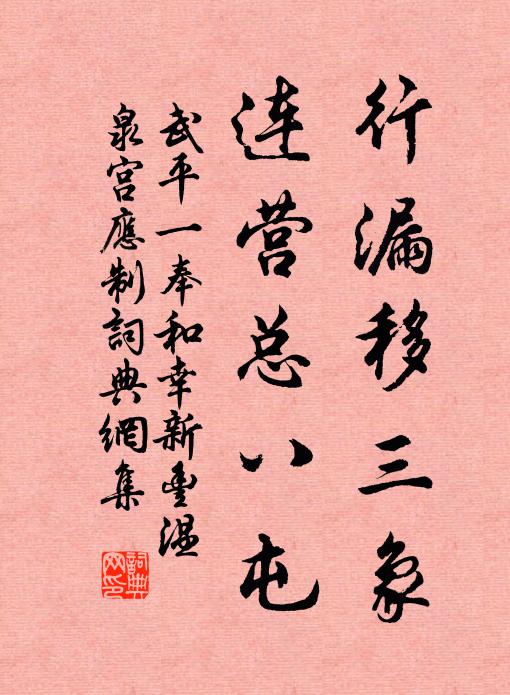 行漏移三象
连营总八屯
武平一奉和幸新豐温
泉宫應制詞典網集
詞典
网印